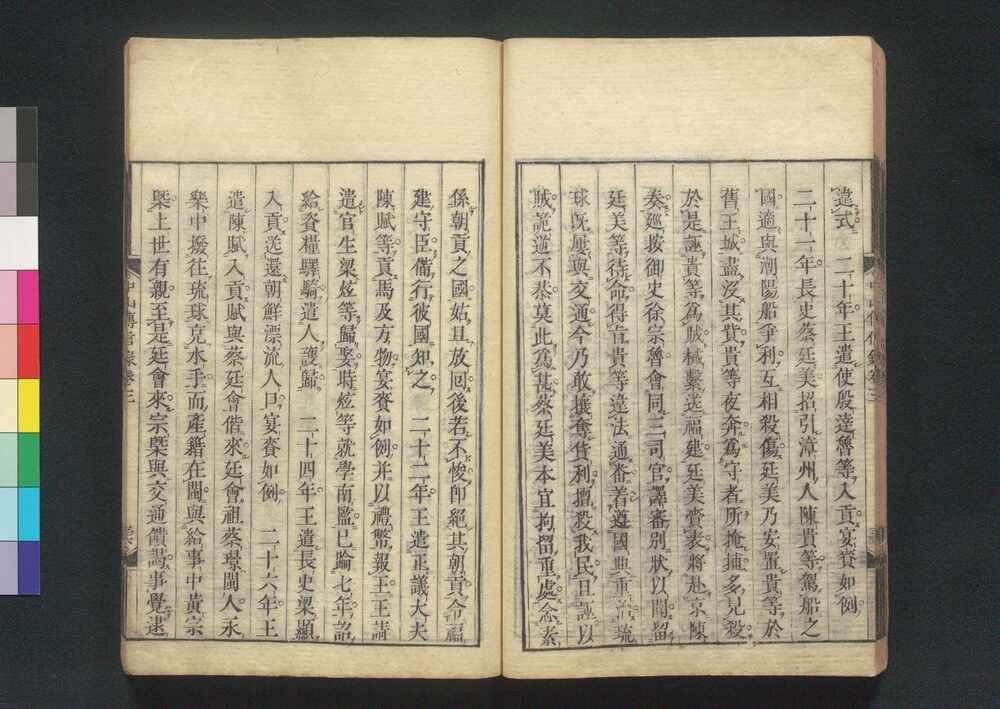 違式　二十年王遣使殷達魯等入貢宴賚如例
二十一年長史蔡廷美招引漳州人陳貴等駕船之
國適與潮陽船爭利互相殺傷廷美乃安置貴等於
舊王城盡沒其貲貴等夜奔爲守者所掩捕多見殺
於是誣貴等爲賊械繫送福建廷美賫表將赴京陳
奏廵按御史徐宗魯會同三司官譯審别狀以聞留
廷美等待命得旨貴等違法通番着遵國典重治琉
球既屢與交通今乃敢攘奪貨利擅殺我民且誣以
賊詭逆不恭莫此爲甚蔡廷美本宜拘留重處念素
係朝貢之國姑且放回後若不悛卽絕其朝貢令福
建守臣備行彼國知之　二十二年王遣正議大夫
陳賦等貢馬及方物宴賚如例并以禮幣報王王請
遣官生梁炫等歸娶時炫等就學南監已踰七年詔
給資糧驛騎遣人護歸　二十四年王遣長史梁顯
入貢送還朝鮮漂流人口宴賚如例　二十六年王
遣陳賦入貢賦與蔡廷會偕來廷會祖蔡璟閩人永
樂中撥往琉球充水手而產籍在閩與給事中黃宗
槩上世有親至是廷會來宗槩與交通饋謁事覺逮
中山傳信錄卷三